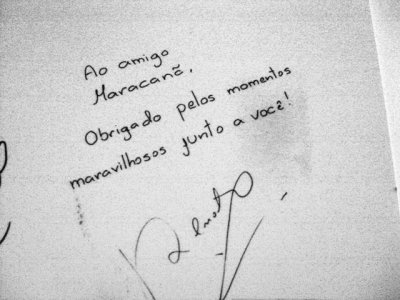 Ao amigo
Maracanã,
Obrigado pelos momentos
maravilhosos junto a você!